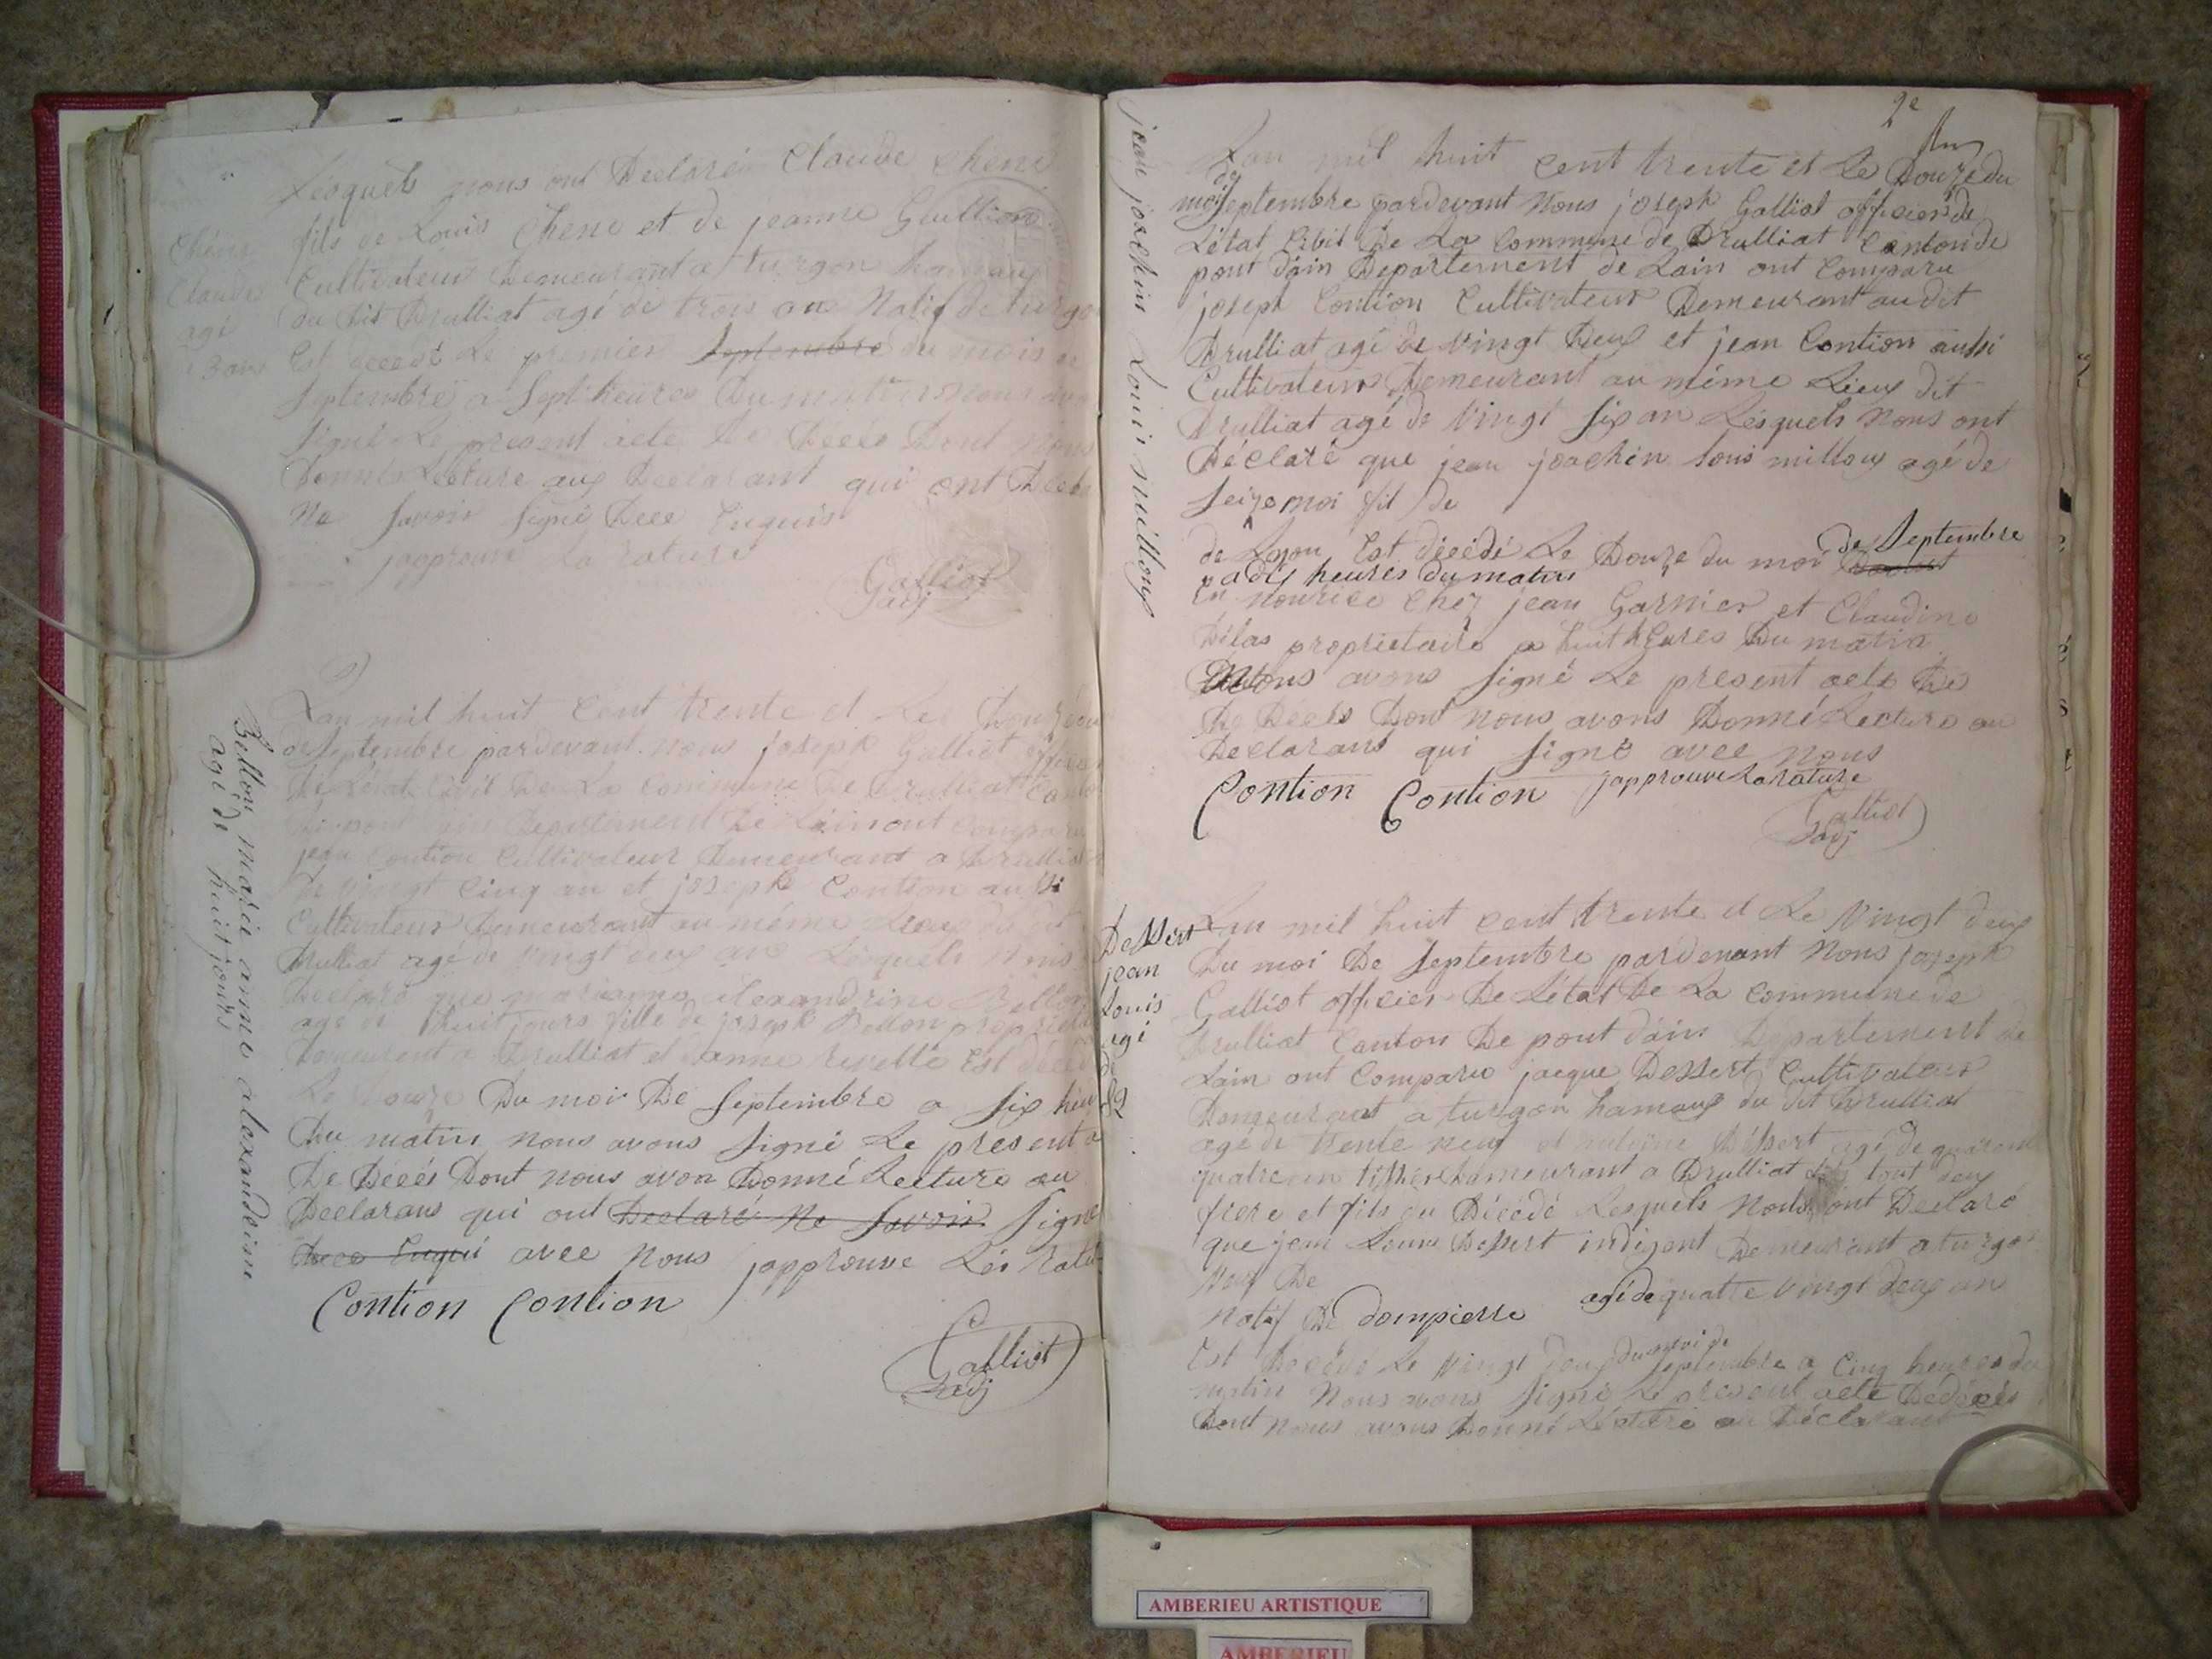 Lésquels nous ont Déclaré Claude Chêne
fils de Louis Chene et de jeanne Guillion
Cultivateur Demeurant a turgon hamaux
du dit Drulliat agé de trois an Natif de turgon
Est décédé Le premier Septembre du mois de
Septembre a Sept heures Du matin nous avons
Signé Le present acte De Décés Dont Nous
Donnés Lecture aux Declarant qui ont Déclaré
Ne Savoir Signé Dece Enquis
japprouve La rature
Galliot
adj
Chêne
Claude
agé
3 ans
Lan mil huit Cent trente et Le Douze
de Septembre pardevant Nous joseph Galliot officier
De Létat Civil De La Commune De Drulliat Canton
Departement De Lain ont Comparu
jean Contion Cultivateur Demeurant a Drulliat
De vingt Cinq an et joseph Contion aussi
Cultivateur Demeurant au même Lieux du dit
Drulliat agé de Vingt deux ans Lésquels Nous
Déclaré que alexandrine Bellon
agé de huit jours fille de joseph Bellon propriet
Demeurent a Drulliat et danne revelle Est décédé
Le Douze Du moi De Septembre a Six heu
Du matin nous avons Signé Le present a
De Décés Dont nous avon Donné Lecture au
Declarans qui ont Declaré Ne Savoir Signé
Dece Enqui avec nous japprouve Lés Ratu
Contion Contion
Galliot
adj
Bellon marie anne alexandrine
agé de huit jours
2e
Lan mil huit Cent trente et Le Douze du
moi de Septembre pardevant Nous joseph Galliot officier de
Létat Civil De La Commune de Drulliat Canton de
pont Dain Departement de Lain ont Comparu
joseph Contion Cultivateur Demeurant audit
Drulliat agé de Vingt Deux et jean Contion aussi
Cultivateur Demeurant au même Lieux dit
Drulliat agé de Vingt Six an Lésquels Nous ont
Déclaré que jean joachin Louis milloux agé de
Seize moi fil de
de Lyon Est décédé Le Douze du moi Daout de Septembre
a dix heures du matin
En nourice Chez jean Garnier et Claudine
Délas proprietaire a huit heures Du matin
Nous avons Signé Le present acte De
De Décés Dont nous avons Donné Lecture au
Declarans qui Signé avec nous
Contion Contion japprouve La rature
Galliot
adj
jean joachin Louis milloux
Lan mil huit cent trente et Le Vingt deux
Du moi De Septembre pardevant Nous joseph
Galliot officier De Létat De La Commune de
Drulliat Canton De pont Dain Departement de
Lain ont Comparu jacque Dessert Cultivateur
Demeurant a turgon hamaux du dit Drulliat
agé de trente neuf et antoine Dessert agé de quarante
quatre an tissier Demeurant a Drulliat tout deux
frere et fils du Décédé Lésquels Nous ont Déclaré
que jean Louis Dessert indigent Demeurant a turgon
De
Natif De dompierre agé de quatre Vingt deux an
Est Décédé Le Vingt Deux du moi de Septembre a Cinq heures du
matin Nous avons Signé Le present acte De décés
Dont nous avons Donné Lecture au Déclarant
Dessert
jean
Louis
agé
de
82
AMBERIEU ARTISTIQUE
AMBERIEU